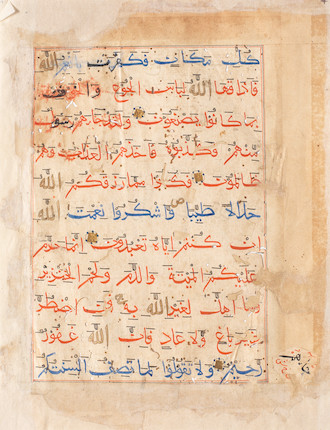 كل مكان فكفرت بانعم الله
فاذاقها الله لباس الجوع والخوف
بما كانوا يصنعون ولقد جاءهم رسول
منهم فكذبوه فاخذهم العذاب وهم
ظالمون فكلوا مما رزقكم الله
حلالا طيبا واشكروا نعمت الله
ان كنتم اياه تعبدون انما حرم
عليكم الميتة والدم ولحم الخنزير
وما اهل لغير الله به فمن اضطر
غير باغ ولا عاد فان الله غفور
رحيم ولا تقولوا لما تصف السنتكم